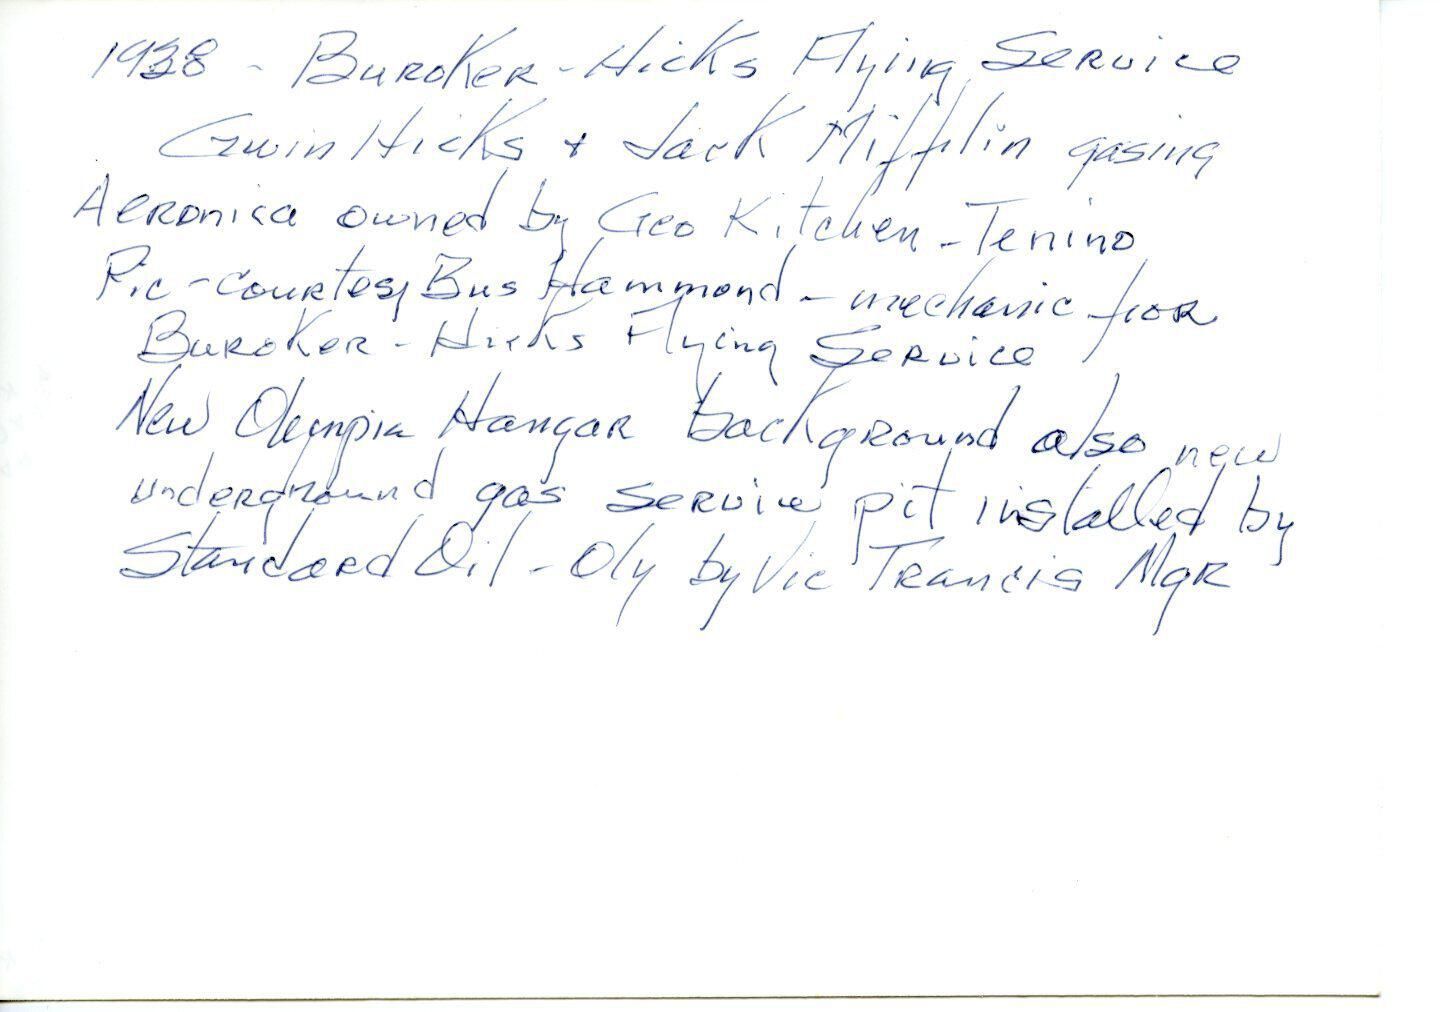 1938 - Buroker-Hicks Flying Service
Gwin Hicks + Jack Mifflin gasing
Aeronica owned by Geo Kitchen - Tenino
Pic-courtesy Bus Hammond - mechanic for
Buroker-Hicks Flying Service
New Olympia Hangar background also new
underground gas service pit installed by
Standard Oil - Oly by Vic Francis Mgr